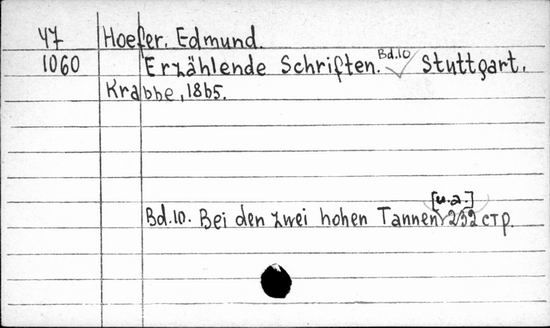 47 Hoefer, Edmund.
1060 Erzählende Schriften. Bd.10 Stuttgart,
Krabbe, 1865.
Bd.10. Bei den zwei hohen Tannen [u.a.] 252 стр.